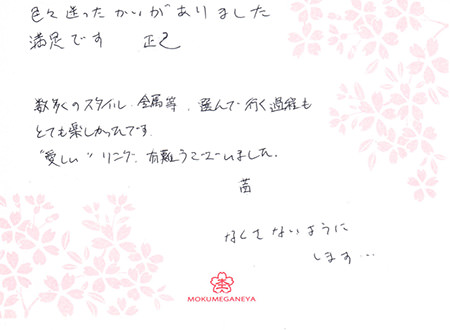 色々迷ったかいがありました
満足です 正己
数多くのスタイル、金属等、選んで行く過程も
とても楽しかったです。
"愛しい" リング、有難うございました。
茜
なくさないように
します…
MOKUMEGANEYA